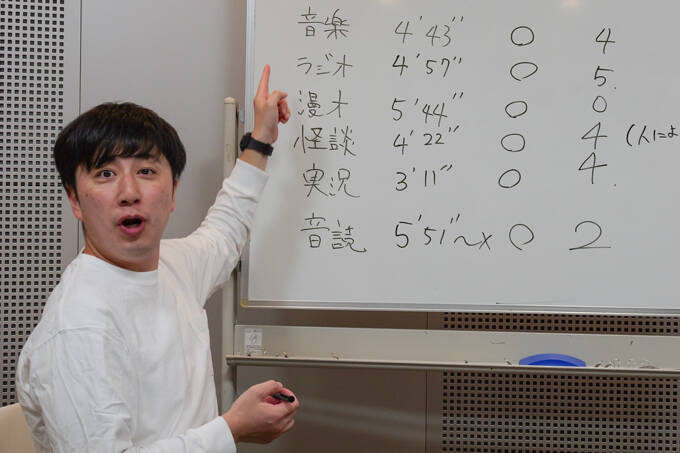 音楽 4'43" ○ 4
ラジオ 4'57" ○ 5.
漫才 5'44" ○ 0
怪談 4'22" ○ 4 (人によ
実況 3'11" ○ 4.
音読 5'51"~× ○ 2